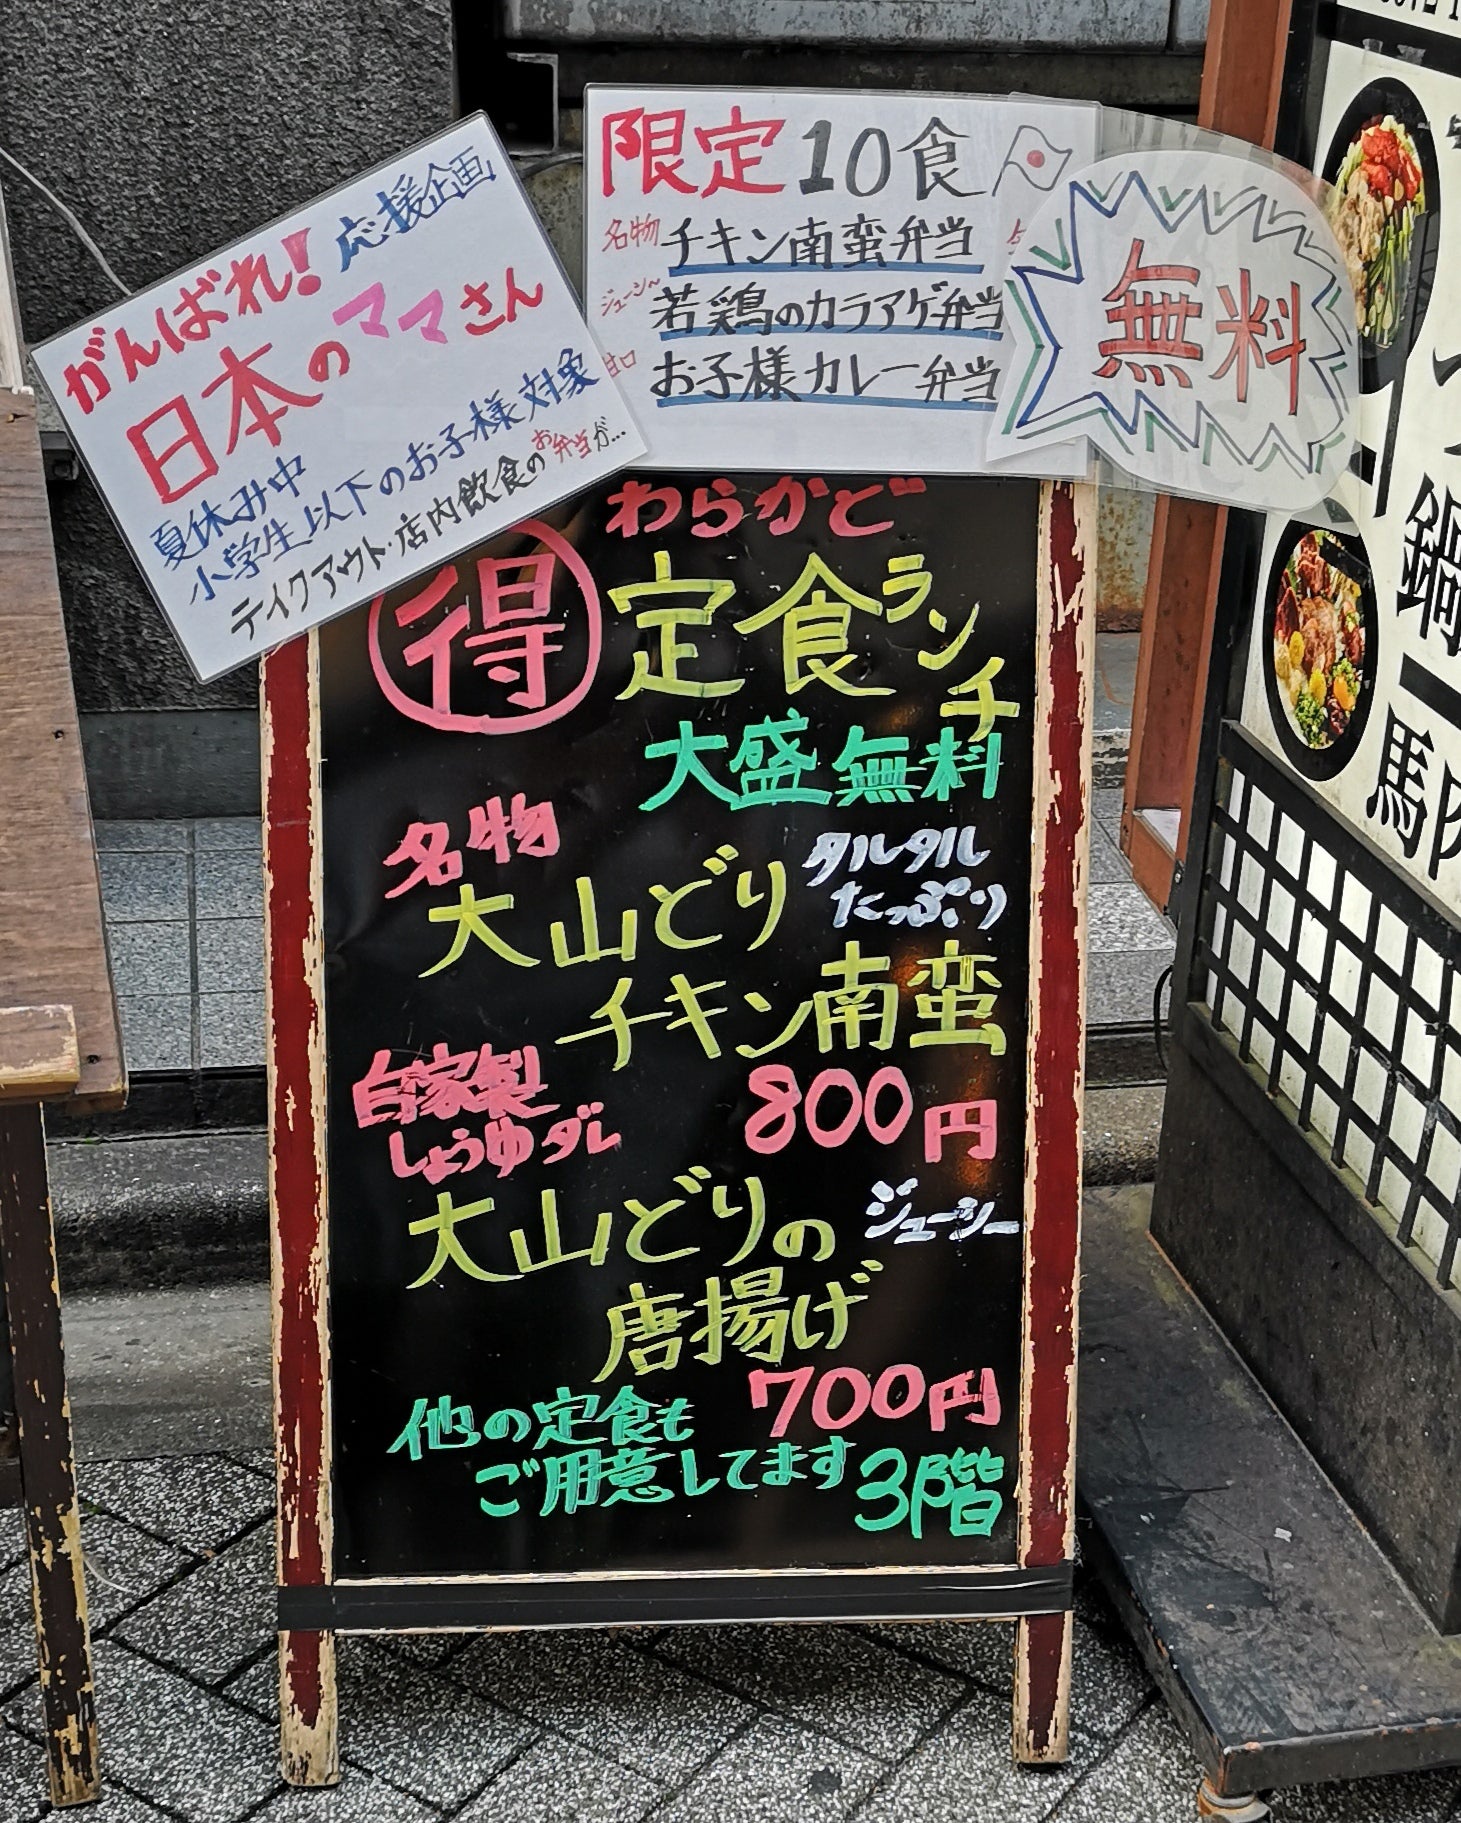 がんばれ!応援企画
日本のママさん
夏休み中
小学生以下のお子様対象
テイクアウト・店内飲食のお弁当が…
限定10食
名物 チキン南蛮弁当
ジューシ〜 若鶏のカラアゲ弁当
甘口 お子様カレー弁当
無料
わらかど
得 定食ランチ
大盛無料
名物
タルタル
たっぷり
大山どり
チキン南蛮
自家製
しょうゆダレ
800円
大山どりの
ジューシー
唐揚げ
700円
他の定食も
ご用意してます
3階
鍋
馬